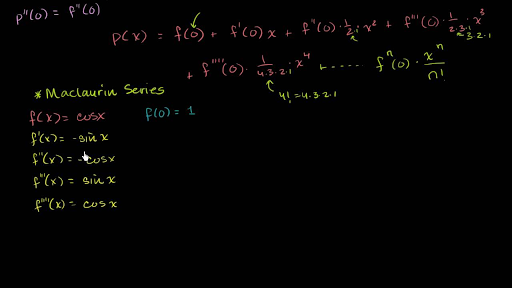 p''(0) = f''(0)
p(x) = f(0) + f'(0) x + f''(0) · 1/2·1 · x² + f'''(0) · 1/2·3·1 · x³
3·2·1
+ f''''(0) · 1/4·3·2·1 x⁴ + ----- fⁿ(0) · xⁿ/n!
4! = 4·3·2·1
* Maclaurin Series
f(x) = cosx f(0) = 1
f'(x) = -sin x
f''(x) = -cosx
f'''(x) = sin x
f''''(x) = cos x